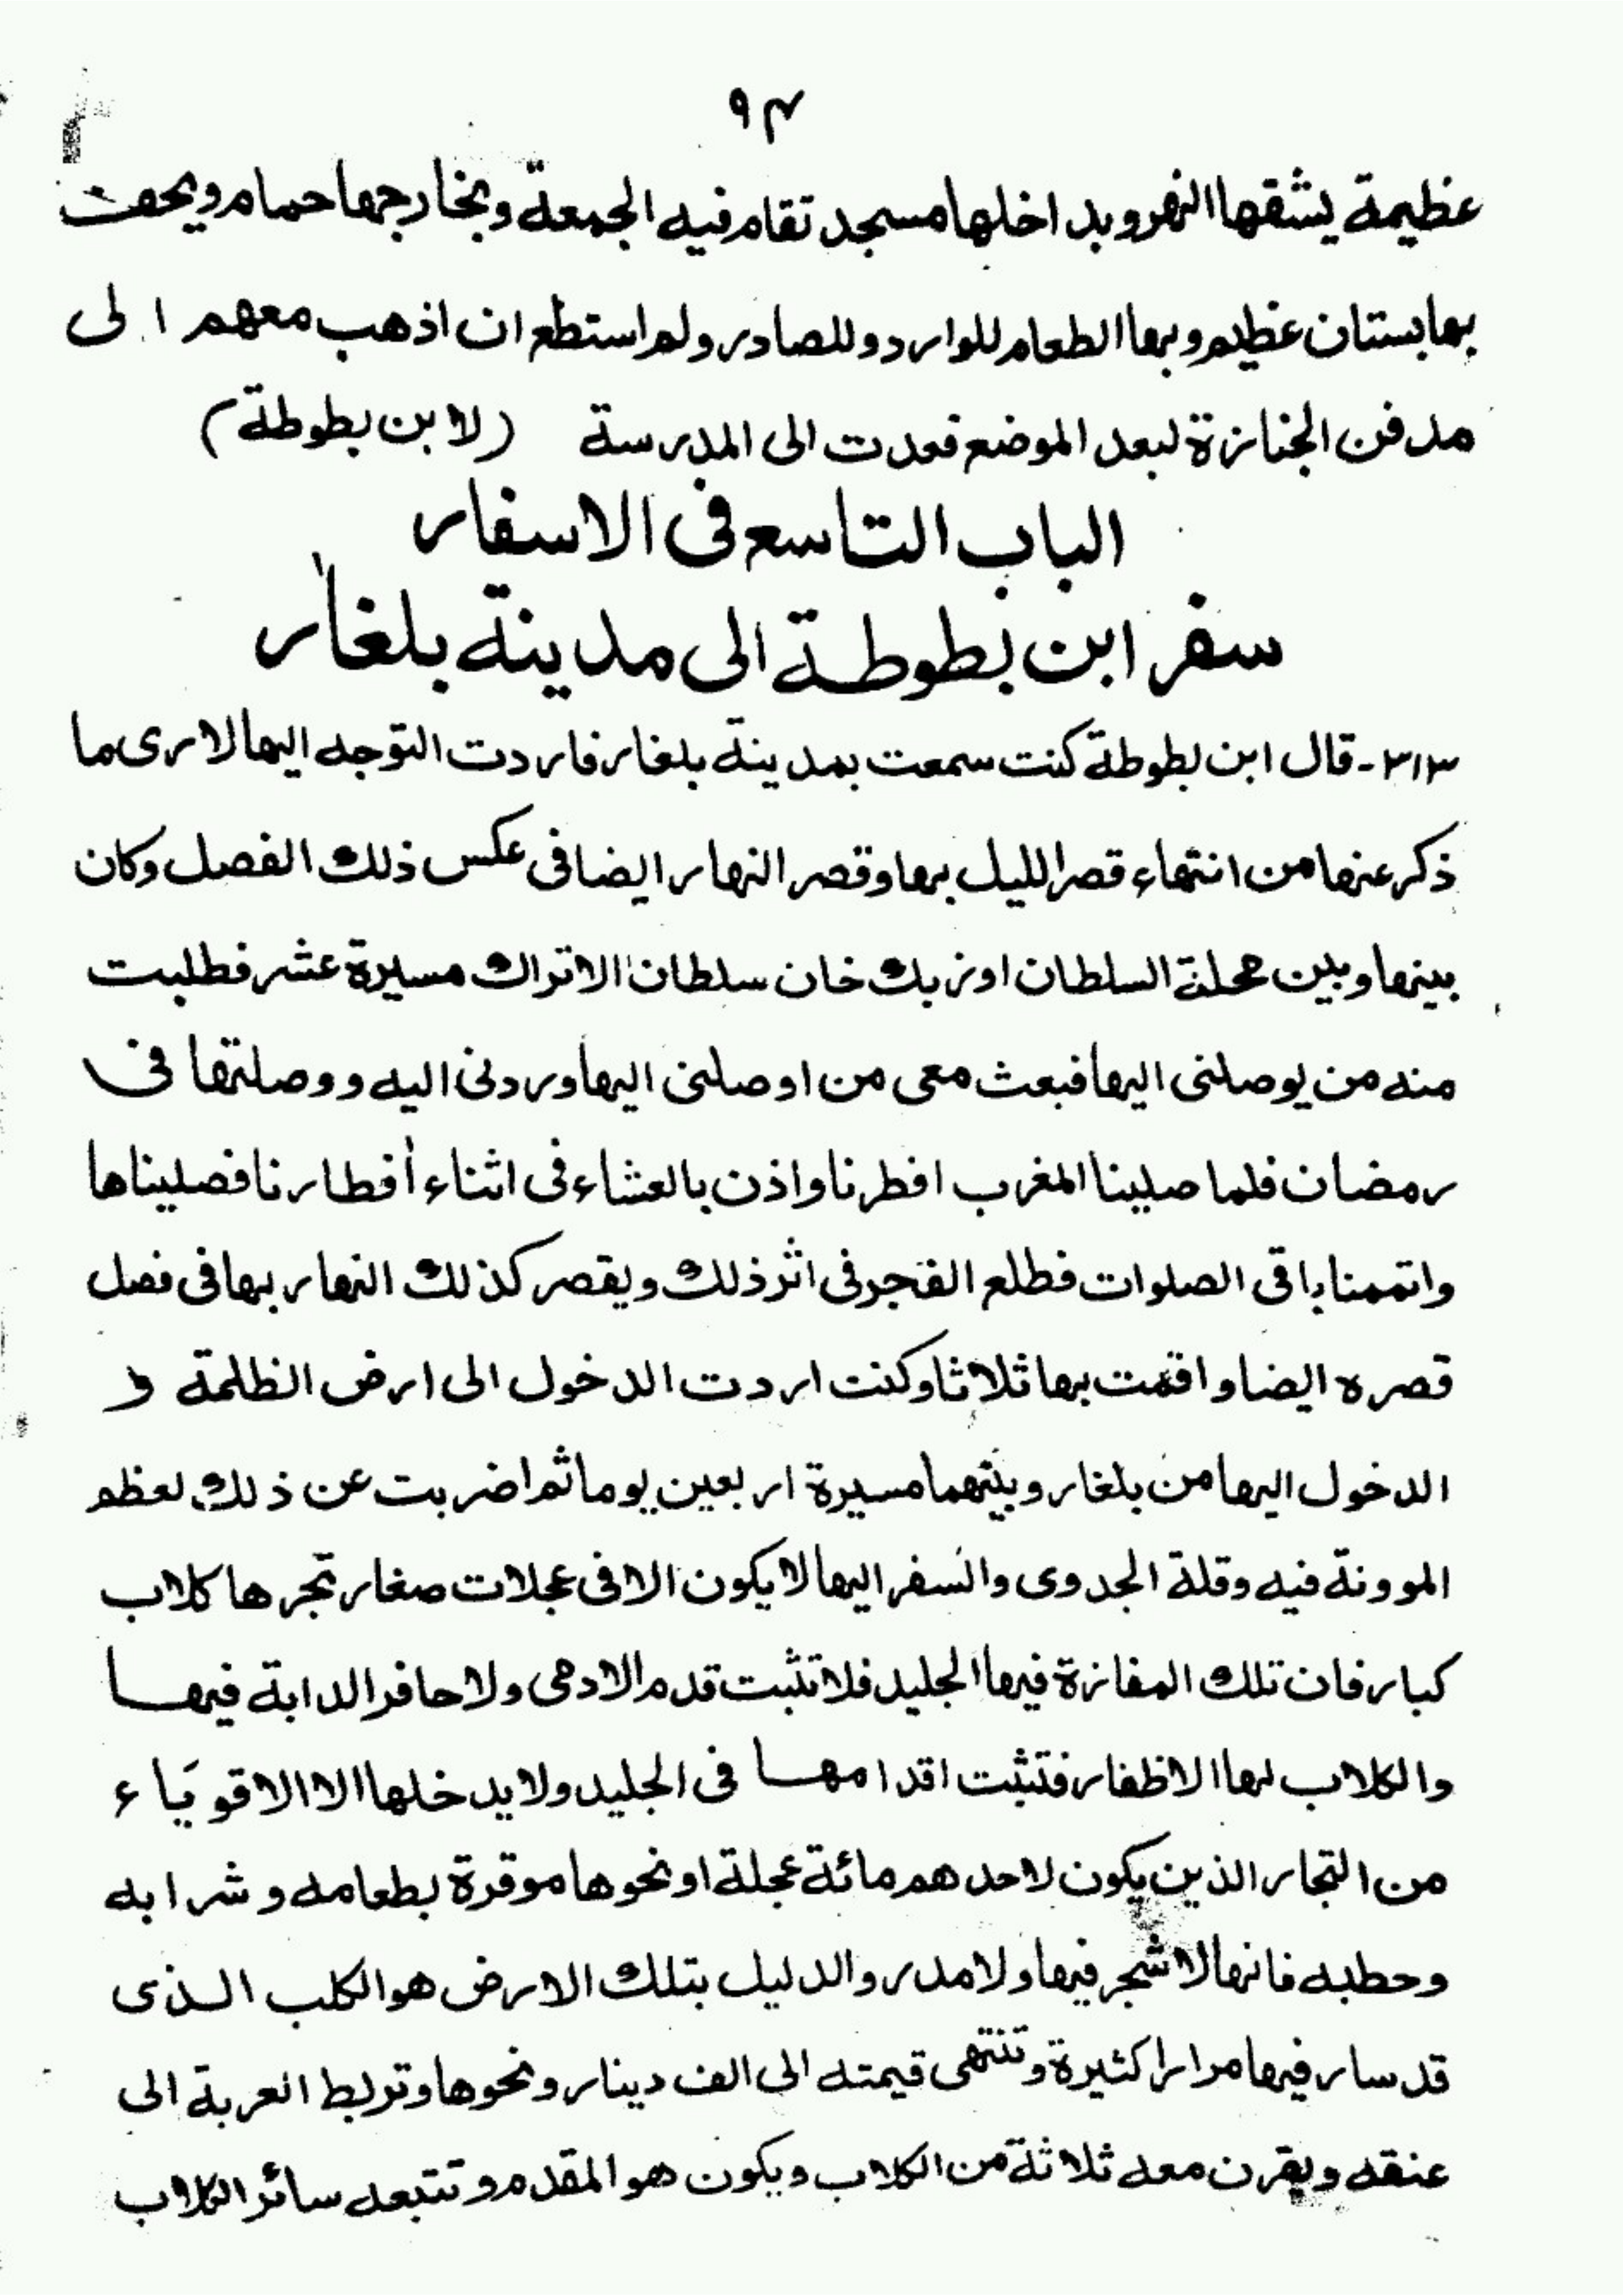 ٩٣
عظيمة يشقها النهر وبداخلها مسجد تقام فيه الجمعة وبخارجها حمام ويحفت
بها بستان عظيم وبها الطعام للوارد وللصادر ولم استطع ان اذهب معهم الى
مدفن الجنازة لبعد الموضع فعدت الى المدرسة (لابن بطوطة)
الباب التاسع فى الاسفار
سفر ابن بطوطة الى مدينة بلغار
٣١٣- قال ابن بطوطة كنت سمعت بمدينة بلغار فاردت التوجه اليها لارى ما
ذكر عنها من انتهاء قصر الليل بها وقصر النهار ايضا فى عكس ذلك الفصل وكان
بينها وبين محلة السلطان اوزبك خان سلطان الاتراك مسيرة عشر فطلبت
منه من يوصلنى اليها فبعث معى من اوصلنى اليها وردنى اليه ووصلتها فى
رمضان فلما صلينا المغرب افطرنا واذن بالعشاء فى اثناء أفطارنا فصليناها
واتممنا باقى الصلوات فطلع الفجر فى اثر ذلك ويقصر كذلك النهار بها فى فصل
قصره ايضا واقمت بها ثلاثا وكنت اردت الدخول الى ارض الظلمة و
الدخول اليها من بلغار وبينهما مسيرة اربعين يوما ثم اضربت عن ذلك لعظم
الموونة فيه وقلة الجدوى والسفر اليها لا يكون الا فى عجلات صغار تجرها كلاب
كبار فان تلك المفازة فيها الجليد فلا تثبت قدم الادمى ولا حافر الدابة فيها
والكلاب لها الاظفار فتثبت اقدامها فى الجليد ولا يدخلها الا الاقوياء
من التجار الذين يكون لاحدهم مائة عجلة او نحوها موقرة بطعامه وشرابه
وحطبه فانها لا شجر فيها ولا مدر والدليل بتلك الارض هو الكلب الذى
قد سار فيها مرارا كثيرة وتنتهى قيمته الى الف دينار ونحوها وتربط العربة الى
عنقه ويقرن معه ثلاثة من الكلاب ويكون هو المقدم وتتبعه سائر الكلاب